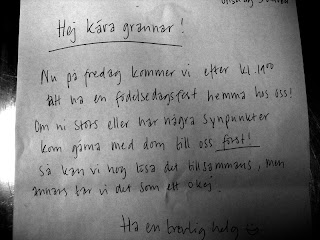 Hej kära grannar!
Nu på fredag kommer vi efter kl. 19.00
att ha en födelsedagsfest hemma hos oss!
Om ni störs eller har några synpunkter
kom gärna med dom till oss först!
Så kan vi nog lösa det tillsammans, men
annars tar vi det som ett okej.
Ha en trevlig helg